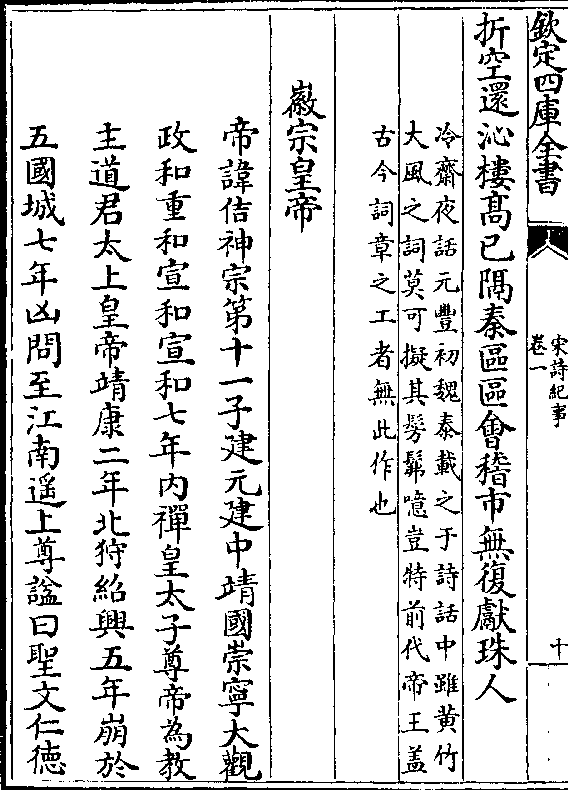 欽定四庫全書
宋詩紀事
卷一
十
折空還沁樓髙已隔秦區區會稽市無復獻珠人
冷齋夜話元豐初魏泰載之于詩話中雖黄竹
大風之詞莫可擬其髣髴噫豈特前代帝王盖
古今詞章之工者無此作也
徽宗皇帝
帝諱佶神宗第十一子建元建中靖國崇寧大觀
政和重和宣和宣和七年内禪皇太子尊帝為教
主道君太上皇帝靖康二年北狩紹興五年崩於
五國城七年凶問至江南遥上尊諡曰聖文仁德